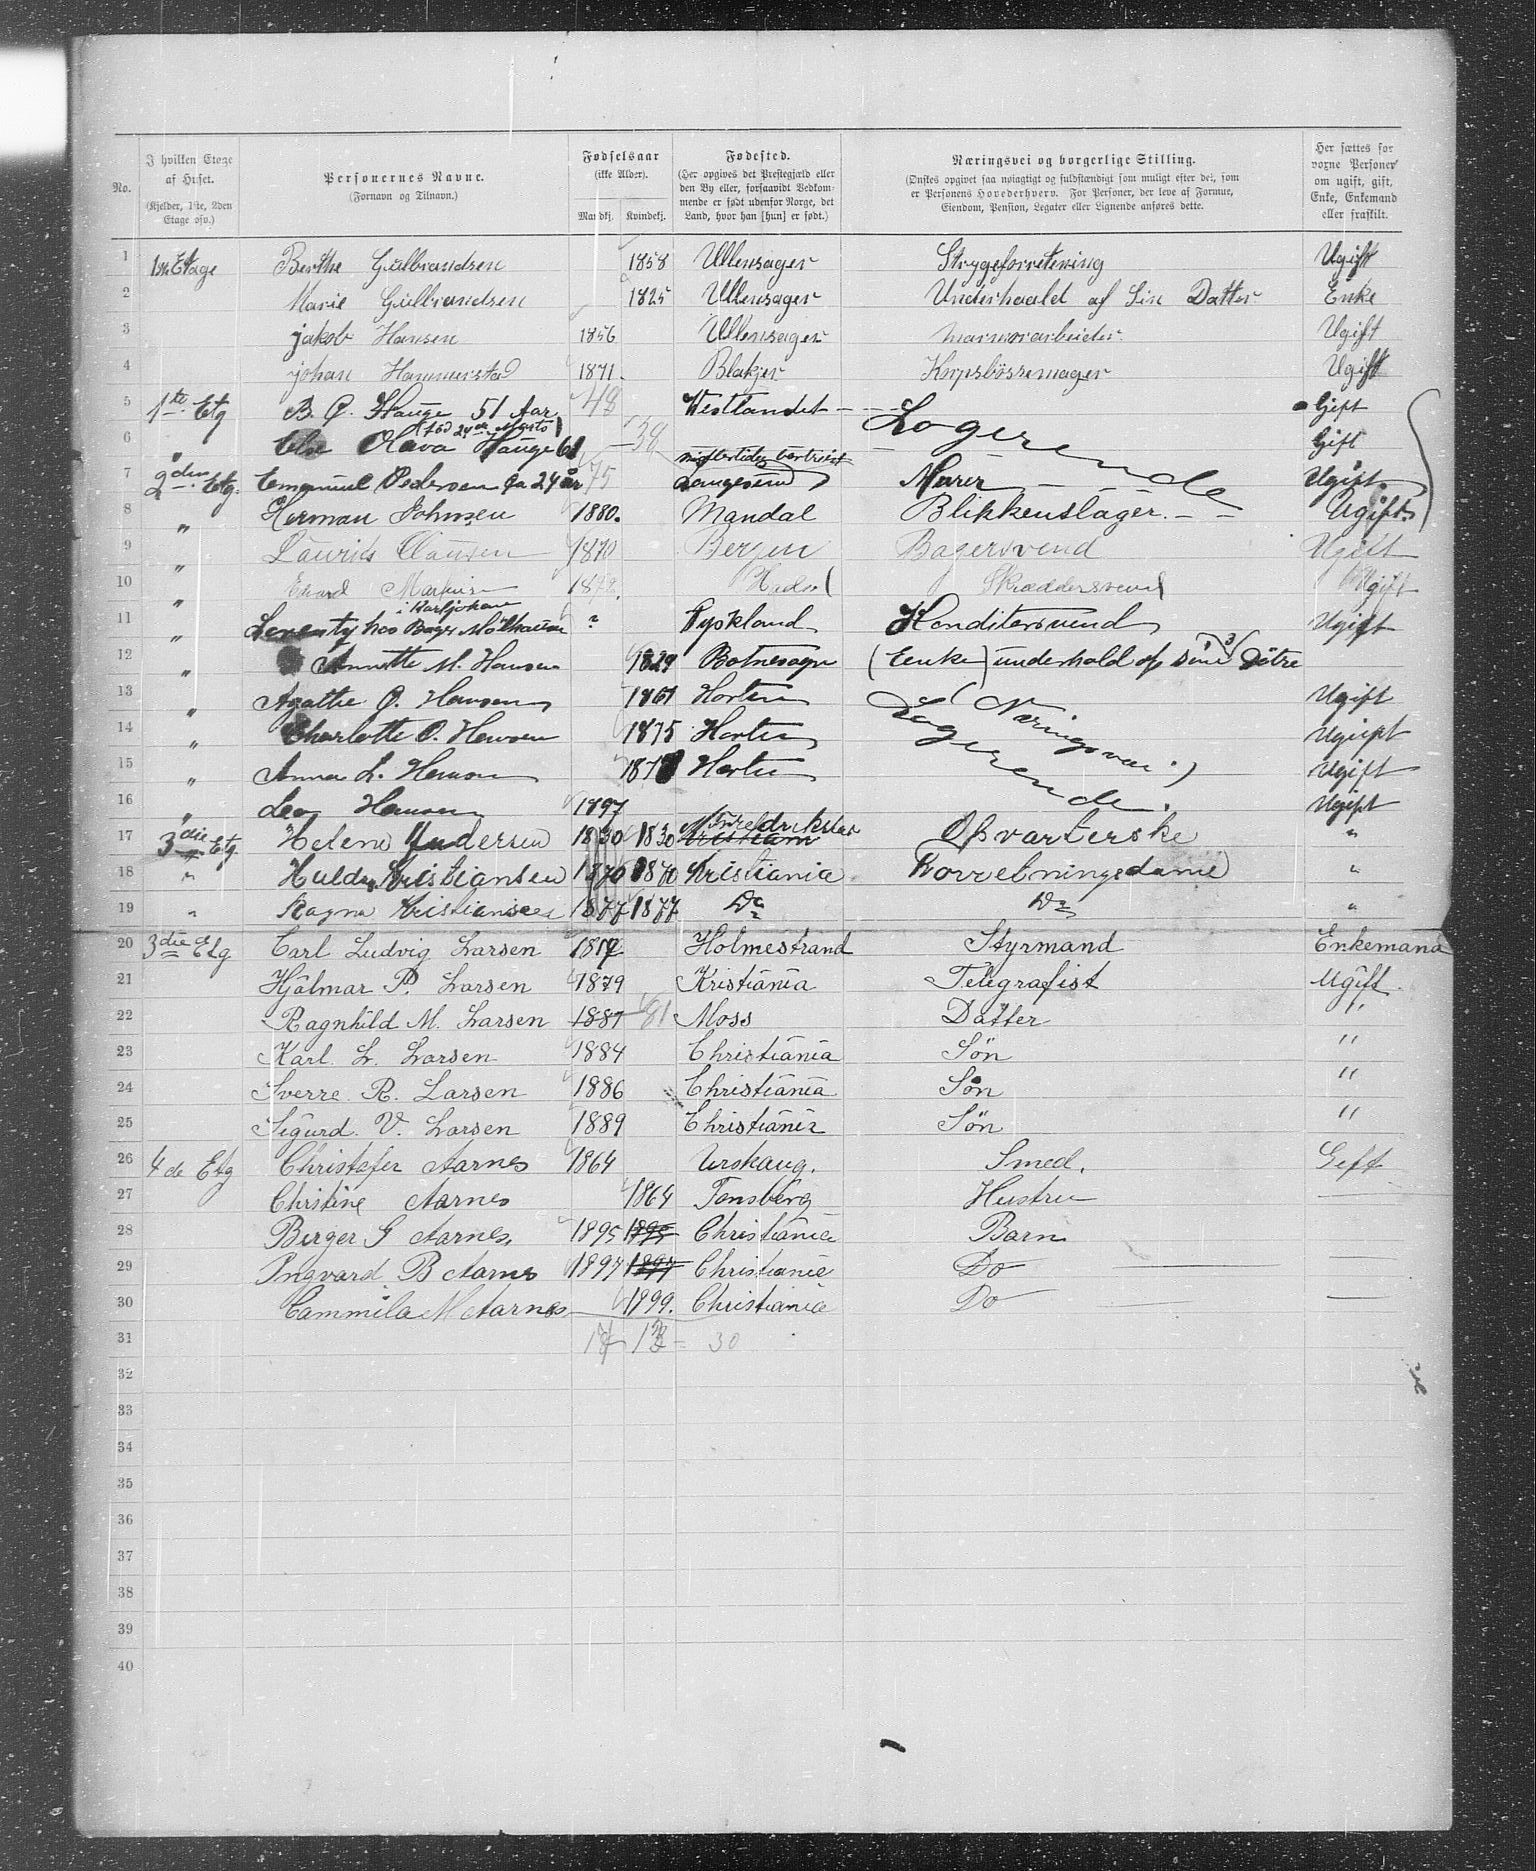 No. | I hvilken Etage af Huset. (Kjelder, 1ste, 2den Etage osv.) | Personernes Navne. (Fornavn og Tilnavn.) | Fødselsaar (ikke Alder). Mandkj. Kvindekj. | Fødested. (Her opgives det Prestegjæld eller den By eller, forsaavidt Vedkommende er født udenfor Norge, det Land, hvor han [hun] er født.) | Næringsvei og borgerlige Stilling. (Ønskes opgivet saa nøiagtigt og fuldstændigt som muligt efter det, som er Personens Hovederhverv. For Personer, der leve af Formue, Eiendom, Pension, Legater eller Lignende anføres dette.) | Her sættes for voxne Personer om ugift, gift, Enke, Enkemand eller fraskilt.
1 1ste Etage Berthe Gulbrandsen 1858 Ullensager Strygeforretning Ugift
2 Marie Gulbrandsen 1825 Ullensager Underhoald af Sin Datter Enke
3 Jakob Hansen 1856 Ullensager Marmorarbeider Ugift
4 Johan Hammerstad 1871. Blakjer Korpsbøssemager Ugift
5 1te Etg B. C. Hauge 51 Aar 48 Vestlandet - - - Logerende Gift
6 " Olava Hauge 61 38 Gift
7 2den Etg. Emanuel Pedersen ca 24 år 75 Langesund Murer - - - Ugift
8 " Herman Johnsen 1880. Mandal Blikkenslager. - - Ugift
9 " Laurits Clausen 1870 Bergen Bagersvend Ugift
10 " Edvard 1872. Hadsel Skræddersvend Ugift
i Karljohan
11 " hos Bager Møllhausen ? Tyskland Konditersvend Ugift
12 " Annette M. Hansen 1829 Botnesogn (Eenke) underhold af sine 3 Døtre
13 " Agathe C. Hansen 1861 Horten (Næringsvei.) Ugift
14 " Charlotte O. Hansen 1875 Horten Logerende. Ugift
15 " Anna L. Hansen 187 Horten Ugift
16 " Leo Hansen 1897 Ugift
17 3die Etg Helene Andersen 1830 1830 Fredrikstad Opvarterske "
18 " Hulda Kristiansen 1870 1870 Kristiania Forrebningsdame "
19 " Ragna Kristiansen 1877 1877 Do Do "
20 3die Etg Carl Ludvig Larsen 1817 Holmestrand Styrmand Enkemand
21 Hjalmar P. Larsen 1879 Kristiania Telegrafist Ugift.
22 Ragnhild M. Larsen 1881 81 Moss Datter "
23 Karl. L. Larsen 1884 Christiania Sön "
24 Sverre. R. Larsen 1886 Christiania Søn "
25 Sigurd. V. Larsen 1889 Christiania Sön "
26 4de Etg Christofer Aarnes 1864 Urskaug. Smed. Gift
27 Christine Aarnes 1864 Tønsberg Hustru —
28 Birger G Aarnes, 1895 1895 Christiania Barn
29 Ingvard B Aarnes 1897 1897 Christiania Do — —
30 Cammila M Aarnes 1899. Christiania Do — —
31 17 13 = 30
32
33
34
35
36
37
38
39
40